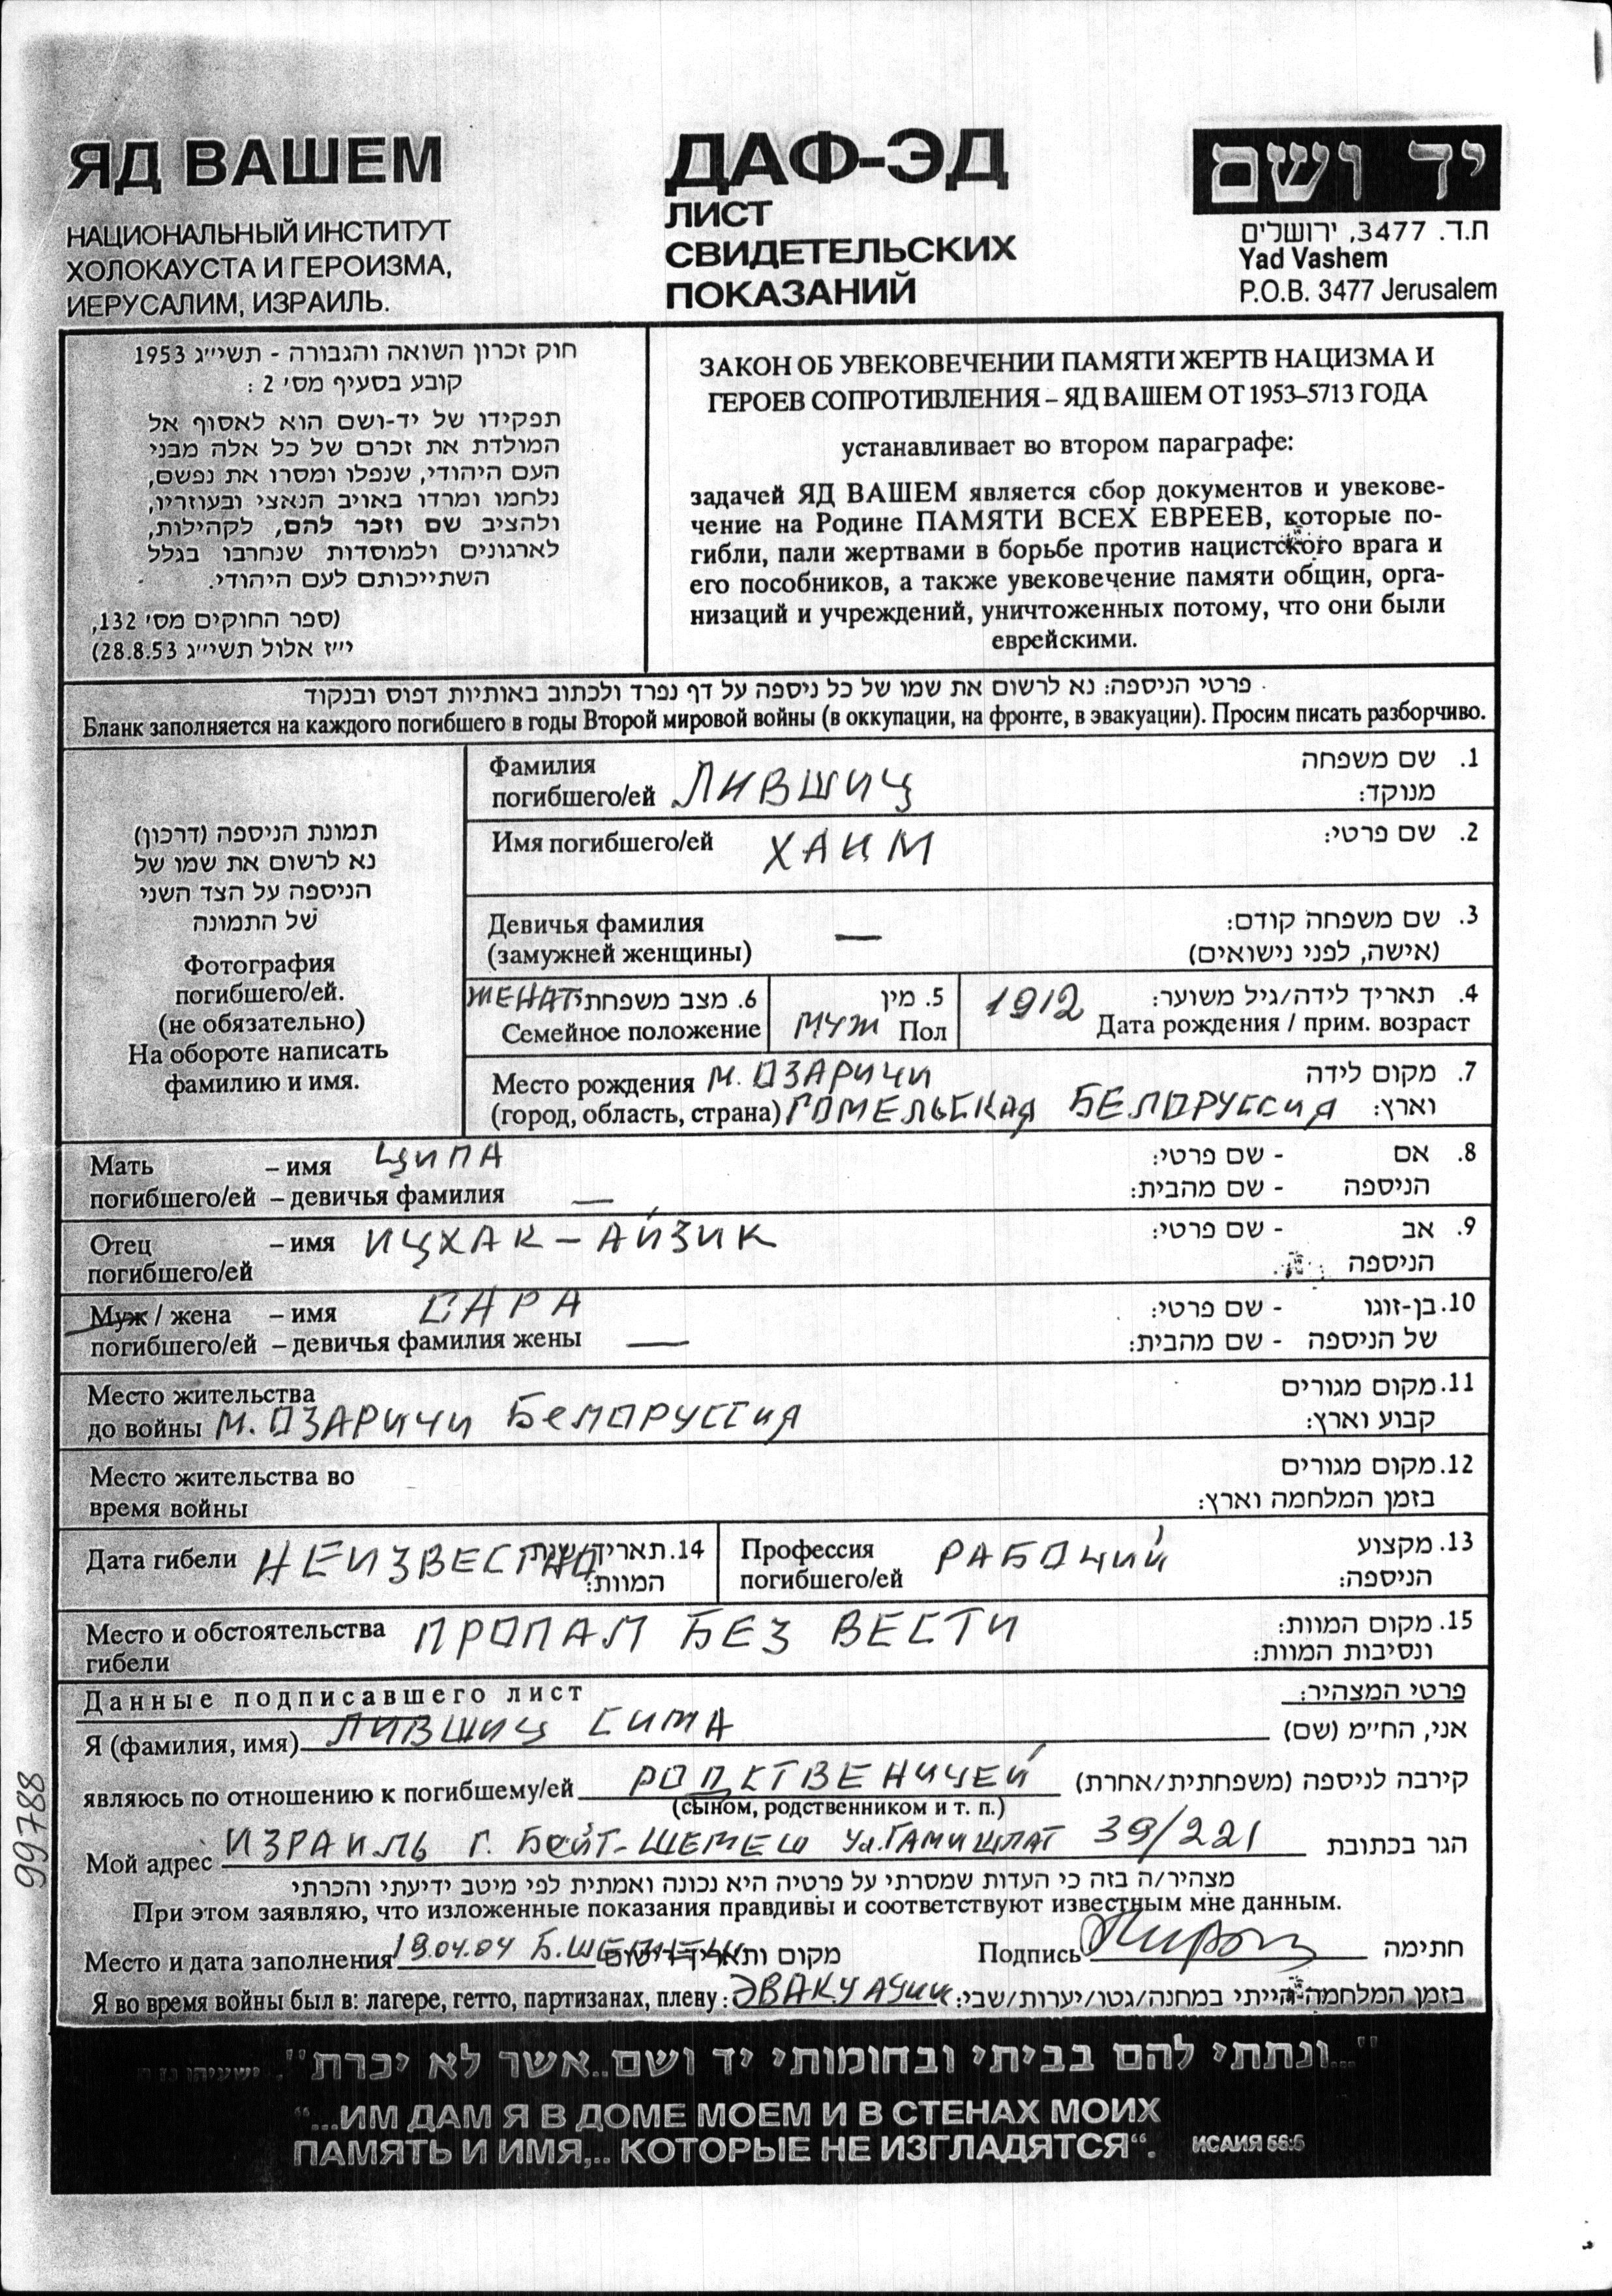 ЯД ВАШЕМ
НАЦИОНАЛЬНЫЙ ИНСТИТУТ
ХОЛОКАУСТА И ГЕРОИЗМА,
ИЕРУСАЛИМ, ИЗРАИЛЬ.
ДАФ-ЭД
ЛИСТ
СВИДЕТЕЛЬСКИХ
ПОКАЗАНИЙ
יד ושם
ת.ד. 3477, ירושלים
Yad Vashem
P.O.B. 3477 Jerusalem
חוק זכרון השואה והגבורה - תשי״ג 1953
קובע בסעיף מס׳ 2 :
תפקידו של יד-ושם הוא לאסוף אל
המולדת את זכרם של כל אלה מבני
העם היהודי, שנפלו ומסרו את נפשם,
נלחמו ומרדו באויב הנאצי ובעוזריו,
ולהציב שם וזכר להם, לקהילות,
לארגונים ולמוסדות שנחרבו בגלל
השתייכותם לעם היהודי.
(ספר החוקים מס׳ 132,
י״ז אלול תשי״ג 28.8.53)
ЗАКОН ОБ УВЕКОВЕЧЕНИИ ПАМЯТИ ЖЕРТВ НАЦИЗМА И
ГЕРОЕВ СОПРОТИВЛЕНИЯ – ЯД ВАШЕМ ОТ 1953–5713 ГОДА
устанавливает во втором параграфе:
задачей ЯД ВАШЕМ является сбор документов и увекове-
чение на Родине ПАМЯТИ ВСЕХ ЕВРЕЕВ, которые по-
гибли, пали жертвами в борьбе против нацистского врага и
его пособников, а также увековечение памяти общин, орга-
низаций и учреждений, уничтоженных потому, что они были
еврейскими.
פרטי הניספה: נא לרשום את שמו של כל ניספה על דף נפרד ולכתוב באותיות דפוס ובנקוד
Бланк заполняется на каждого погибшего в годы Второй мировой войны (в оккупации, на фронте, в эвакуации). Просим писать разборчиво.
תמונת הניספה (דרכון)
נא לרשום את שמו של
הניספה על הצד השני
של התמונה
Фотография
погибшего/ей.
(не обязательно)
На обороте написать
фамилию и имя.
Фамилия 1. שם משפחה
погибшего/ей ЛИВШИЦ מנוקד:
Имя погибшего/ей ХАИМ 2. שם פרטי:
Девичья фамилия — 3. שם משפחה קודם:
(замужней женщины) (אישה, לפני נישואים)
ЖЕНАТ 6. מצב משפחתי 5. מין 1912 4. תאריך לידה/גיל משוער:
Семейное положение МУЖ Пол Дата рождения / прим. возраст
Место рождения М. ОЗАРИЧИ 7. מקום לידה
(город, область, страна) ГОМЕЛЬСКАЯ БЕЛОРУССИЯ וארץ:
Мать – имя ЦИПА 8. אם - שם פרטי:
погибшего/ей – девичья фамилия — הניספה - שם מהבית:
Отец – имя ИЦХАК – АЙЗИК 9. אב - שם פרטי:
погибшего/ей הניספה
Муж / жена – имя САРА 10. בן-זוגו - שם פרטי:
погибшего/ей – девичья фамилия жены — של הניספה - שם מהבית:
Место жительства 11. מקום מגורים
до войны М. ОЗАРИЧИ БЕЛОРУССИЯ קבוע וארץ:
Место жительства во 12. מקום מגורים
время войны בזמן המלחמה וארץ:
Дата гибели НЕИЗВЕСТНО 14. תאריך/שנת המוות:
Профессия РАБОЧИЙ 13. מקצוע
погибшего/ей הניספה:
Место и обстоятельства ПРОПАЛ БЕЗ ВЕСТИ 15. מקום המוות:
гибели ונסיבות המוות:
Данные подписавшего лист פרטי המצהיר:
Я (фамилия, имя) ЛИВШИЦ СИМА אני, הח״מ (שם)
являюсь по отношению к погибшему/ей РОДСТВЕНИЧЕЙ קירבה לניספה (משפחתית/אחרת)
(сыном, родственником и т. п.)
Мой адрес ИЗРАИЛЬ Г. БЕЙТ-ШЕМЕШ УЛ. ГАМИШЛАТ 39/221 הגר בכתובת
מצהיר/ה בזה כי העדות שמסרתי על פרטיה היא נכונה ואמתית לפי מיטב ידיעתי והכרתי
При этом заявляю, что изложенные показания правдивы и соответствуют известным мне данным.
Место и дата заполнения 19.04.04 Б. ШЕМЕШ מקום ותאריך רישום Подпись חתימה
Я во время войны был в: лагере, гетто, партизанах, плену: ЭВАКУАЦИИ בזמן המלחמה הייתי במחנה/גטו/יערות/שבי:
"...ונתתי להם בביתי ובחומותי יד ושם...אשר לא יכרת".
“...ИМ ДАМ Я В ДОМЕ МОЕМ И В СТЕНАХ МОИХ
ПАМЯТЬ И ИМЯ,.. КОТОРЫЕ НЕ ИЗГЛАДЯТСЯ“. ИСАИЯ 56:5
99788